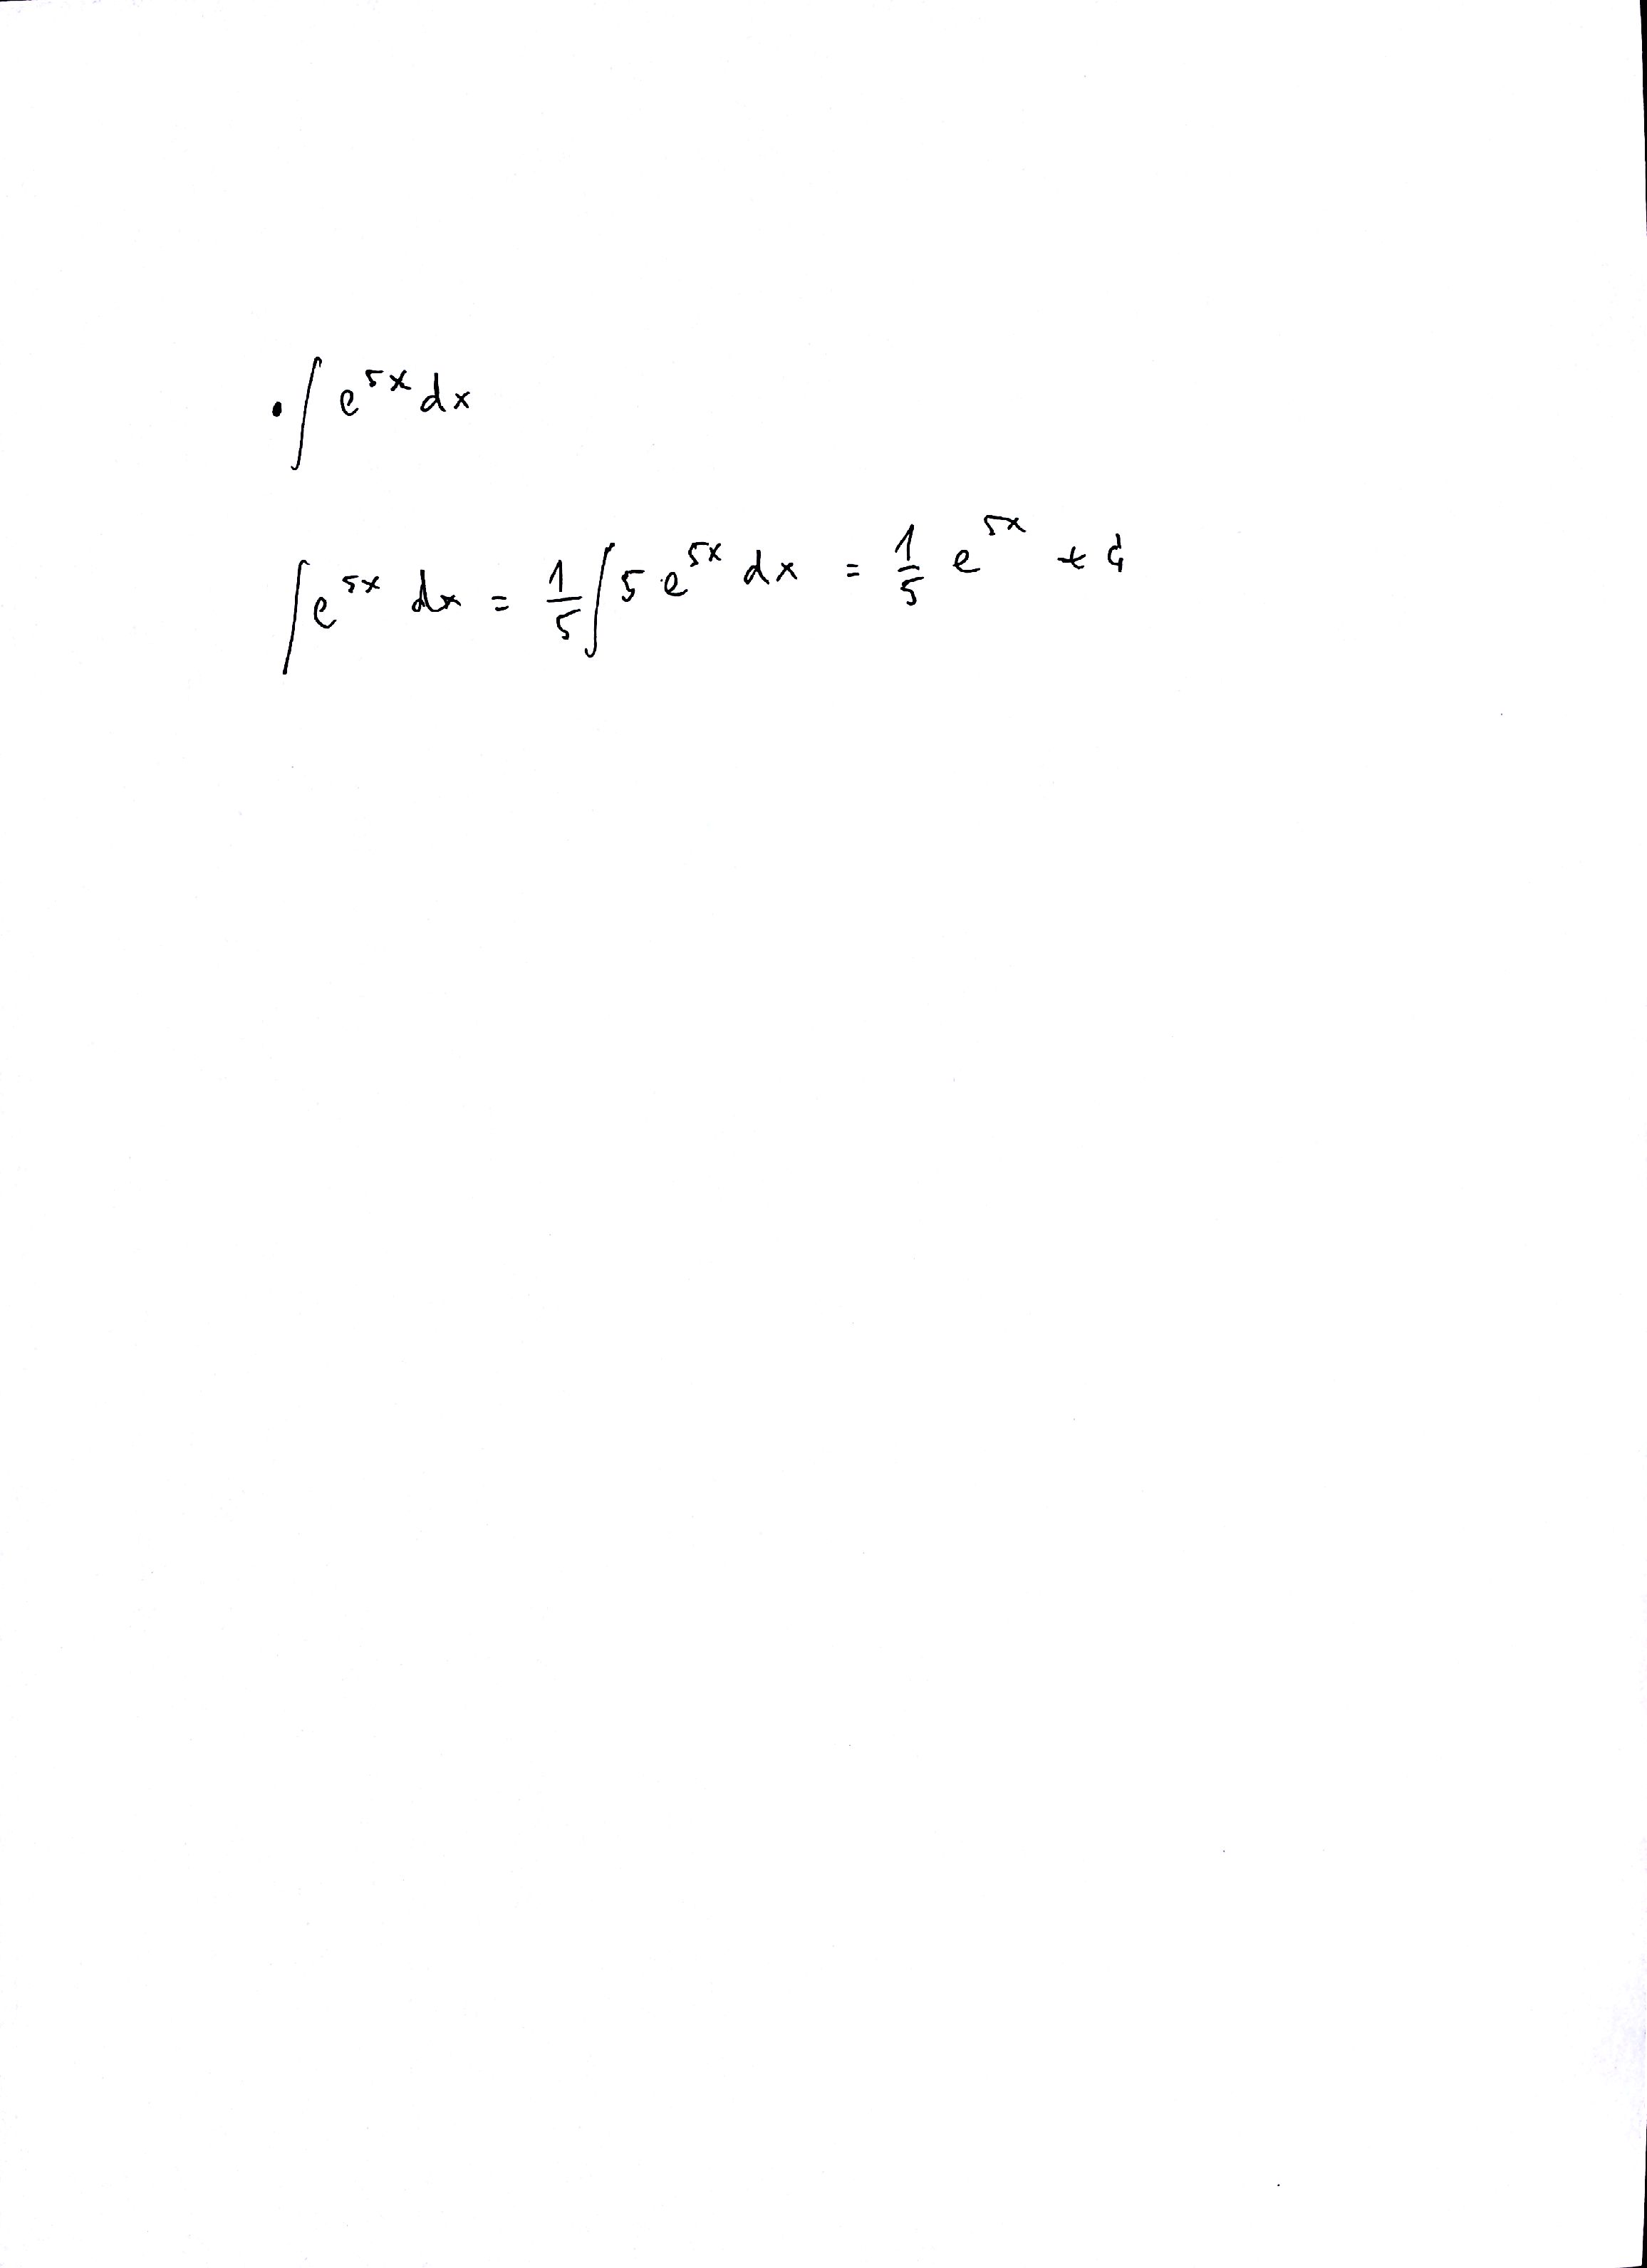 • ∫ e^{5x} dx
∫ e^{5x} dx = \frac{1}{5} ∫ 5 e^{5x} dx = \frac{1}{5} e^{5x} +